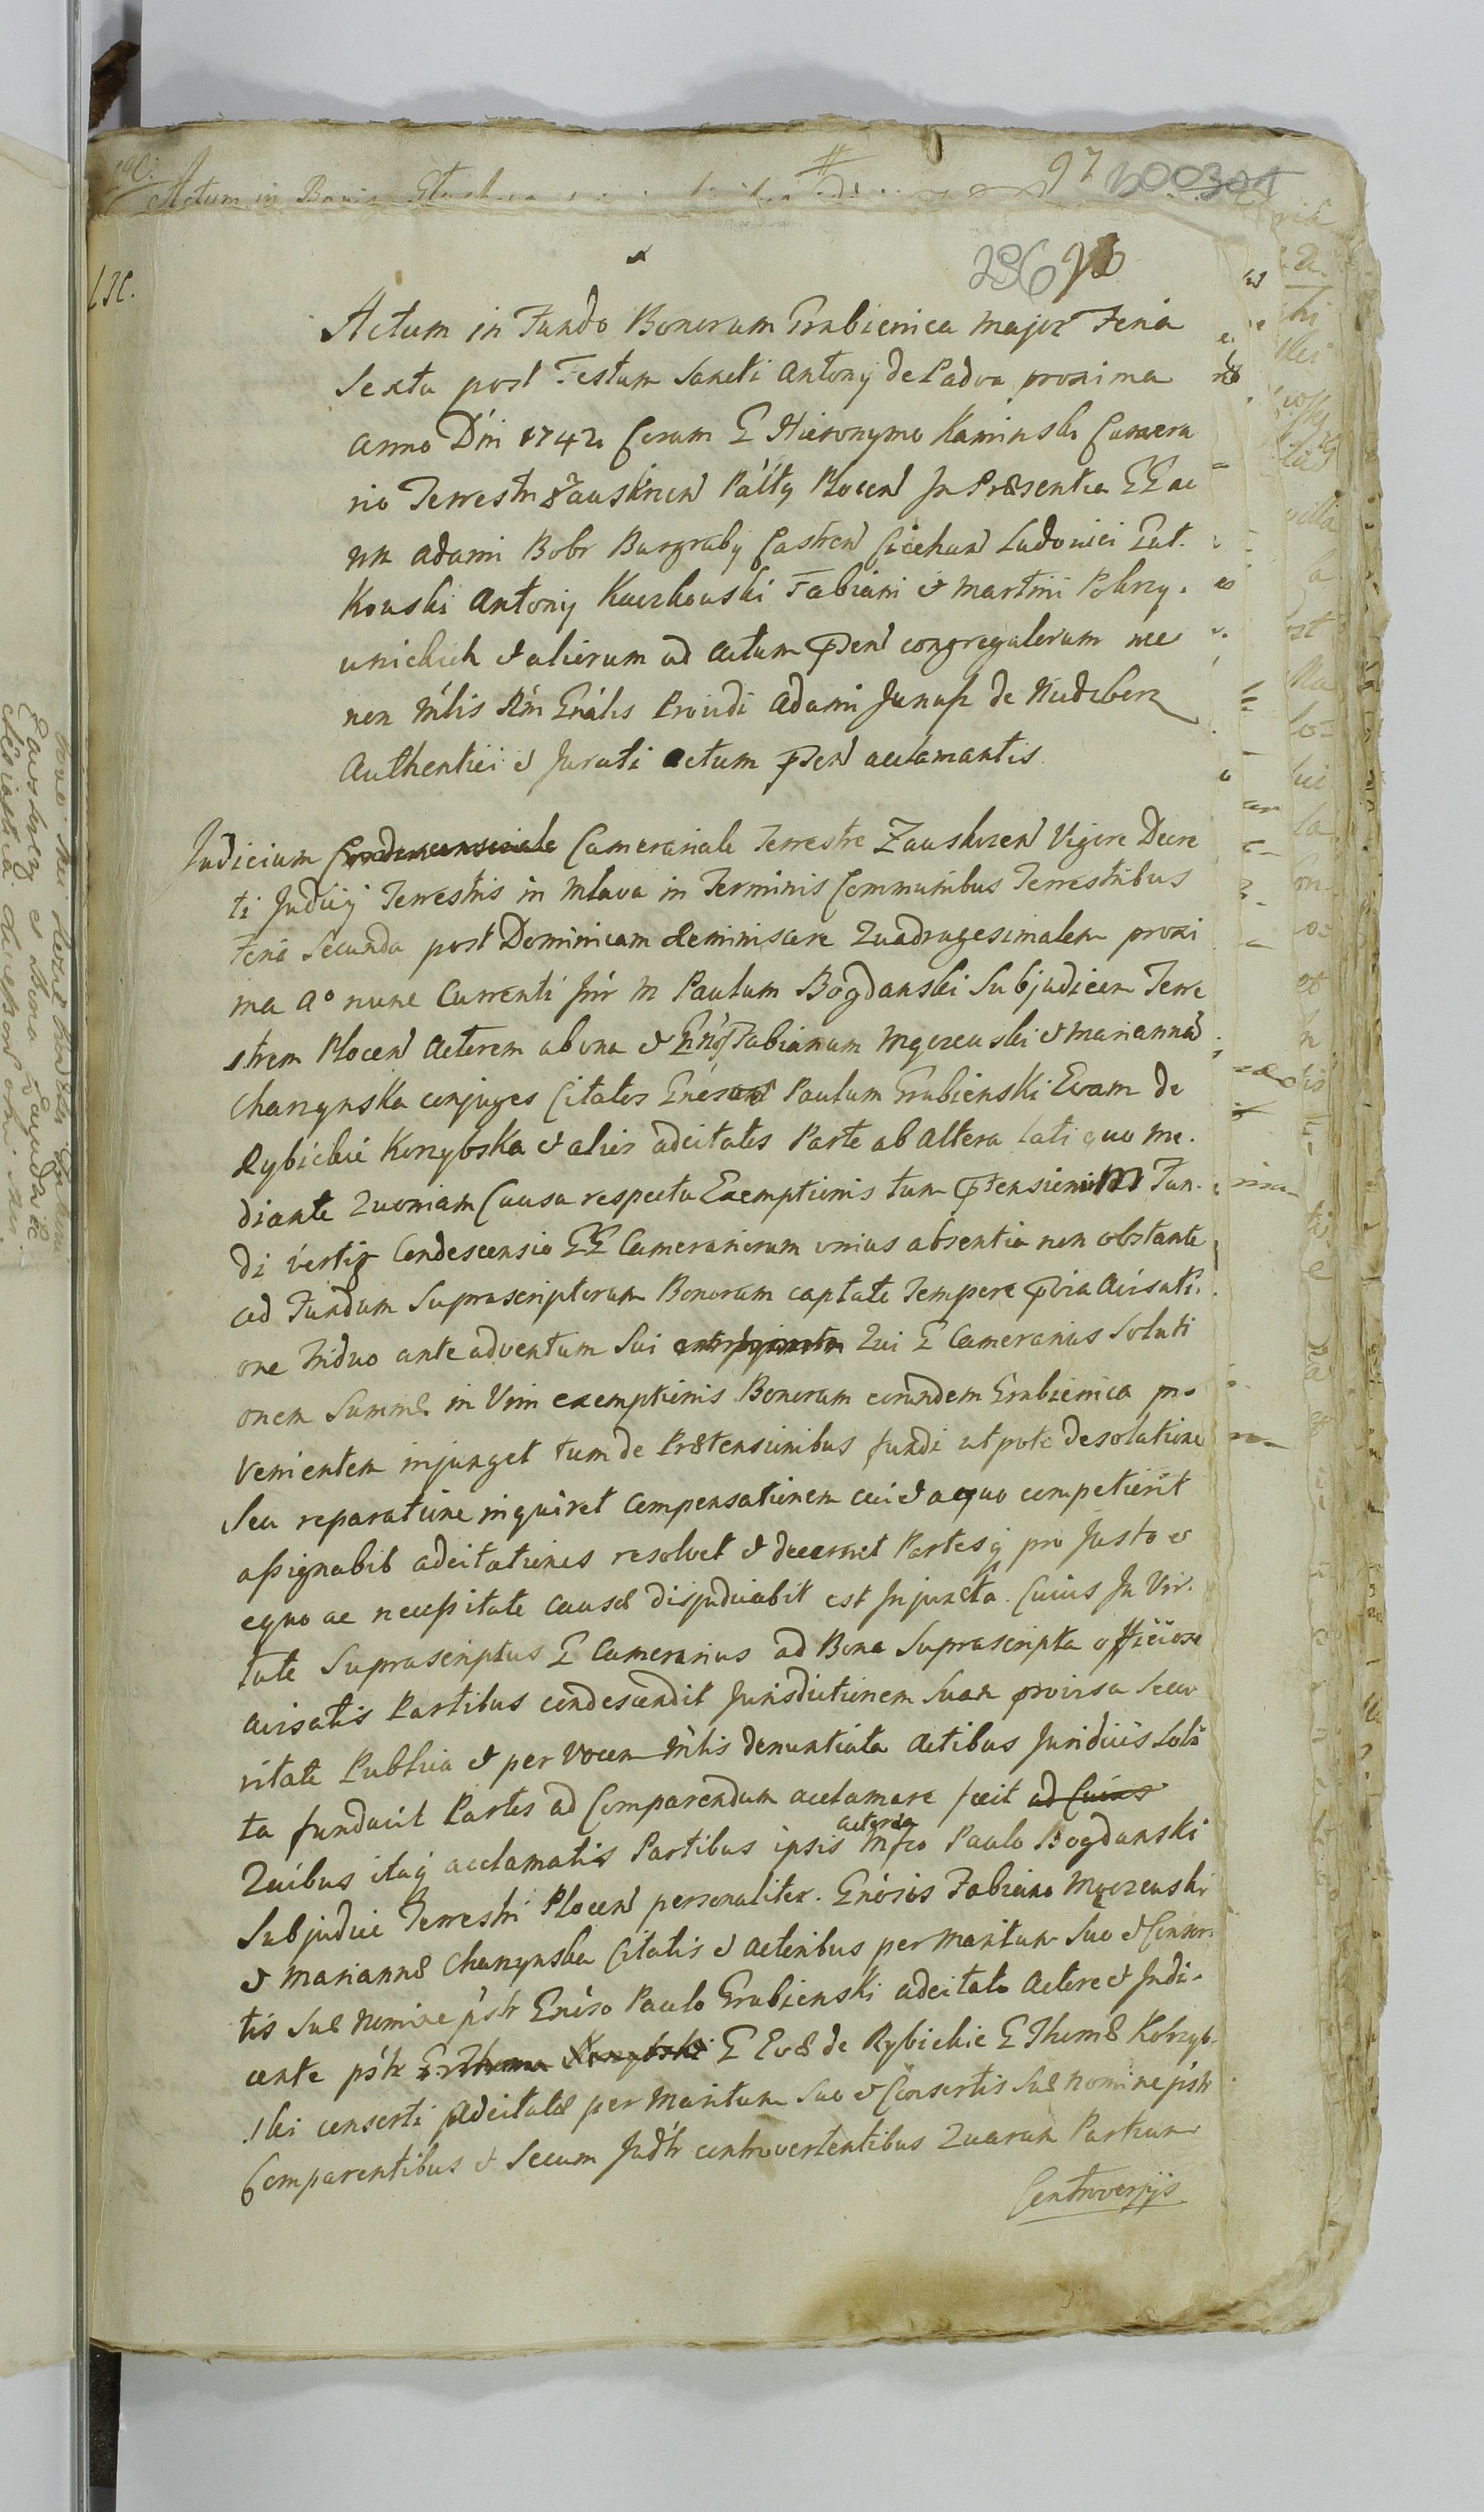 Actum in
97
300301
296
Actum in Fundo Bonorum Grabienica Major Feria
Sexta post Festum Sancti Antonij de Padva proxima
Anno Dni 1742 Coram G Hieronymo Kaminski Camera
rio Terrestri Zauskrzen Palty Plocen In Præsentia GG ac
nn Adami Bobr Burgraby Castren Ciechan Ludovici Gut.
Kouski Antonij Kuczkouski Fabiani et Martini Pokrzy.
unickich et aliorum ad actum pnden congregatorum nec
non Mlis Rm Gnalis Providi Adami Junasz de Niedzborz
Authentici et Jurati actum pnden acclamantis
Judicium Camerariale Terrestre Zauskrzen Vigore Decre
ti Judicij Terrestris in Mlava in Terminis Communibus Terrestribus
Feria Secunda post Dominicam Reminiscere Quadragesimalem proxi
ma Ao nunc Currenti Inr M Paulum Bogdanski Subjudicem Terre
strem Plocen Actorem ab una et Gnos Fabianum Myczeuski et Mariannam
Charzynska conjuges Citatos Gnesos Paulum Grabienski Evam de
Rybickie Korzybska et alios adcitatos Parte ab Altera lati quo me.
diante Quoniam Causa respectu Exemptionis tum Ptensionum Fun.
di vertitur Condescensio GG Camerariorum unius absentia non obstante
ad Fundum Suprascriptorum Bonorum captato Tempore pvia Avisati.
one Triduo ante adventum Sui Qui G Camerarius Soluti
onem Summæ in Vim exemptionis Bonorum eorundem Grabienica pro
venientem injunget tum de Prætensionibus fundi utpote desolatione
Seu reparatione inquiret compensationem cui et a quo competierit
assignabit adcitationes resolvet et decernet Partesq pro Justo et
equo ac necessitate causæ disjudicabit est Injuncta. Cuius In Vir.
tute Suprascriptus G Camerarius ad Bona Suprascripta officiose
avisatis Partibus condescendit Jurisdictionem Suam provisa Secu
ritate Publica et per Vocem Mlis denuntiata Actibus Juridicis Soli
ta fundavit Partes ad Comparendum acclamare fecit ad Cuius
Quibus itaq acclamatis Partibus ipsis actorea Mfco Paulo Bogdanski
Subjudice Terrestri Plocen personaliter. Gnosis Fabiano Myczeuski
et Mariannæ Charzynska Citatis et Actoribus per Maritum Suo et Consor.
tis Suæ Nomine pstr Gneso Paulo Grabienski adcitato Actore et Indi.
cante pstr G Thoma Korzybski G Evæ de Rybickie G Thomæ Kobrzyb.
ski consorti Adcitatæ per Maritum Suo et Consortis Suæ nomine pstr
Comparentibus et Secum Judtr controvertentibus Quarum Partium
Controversijs